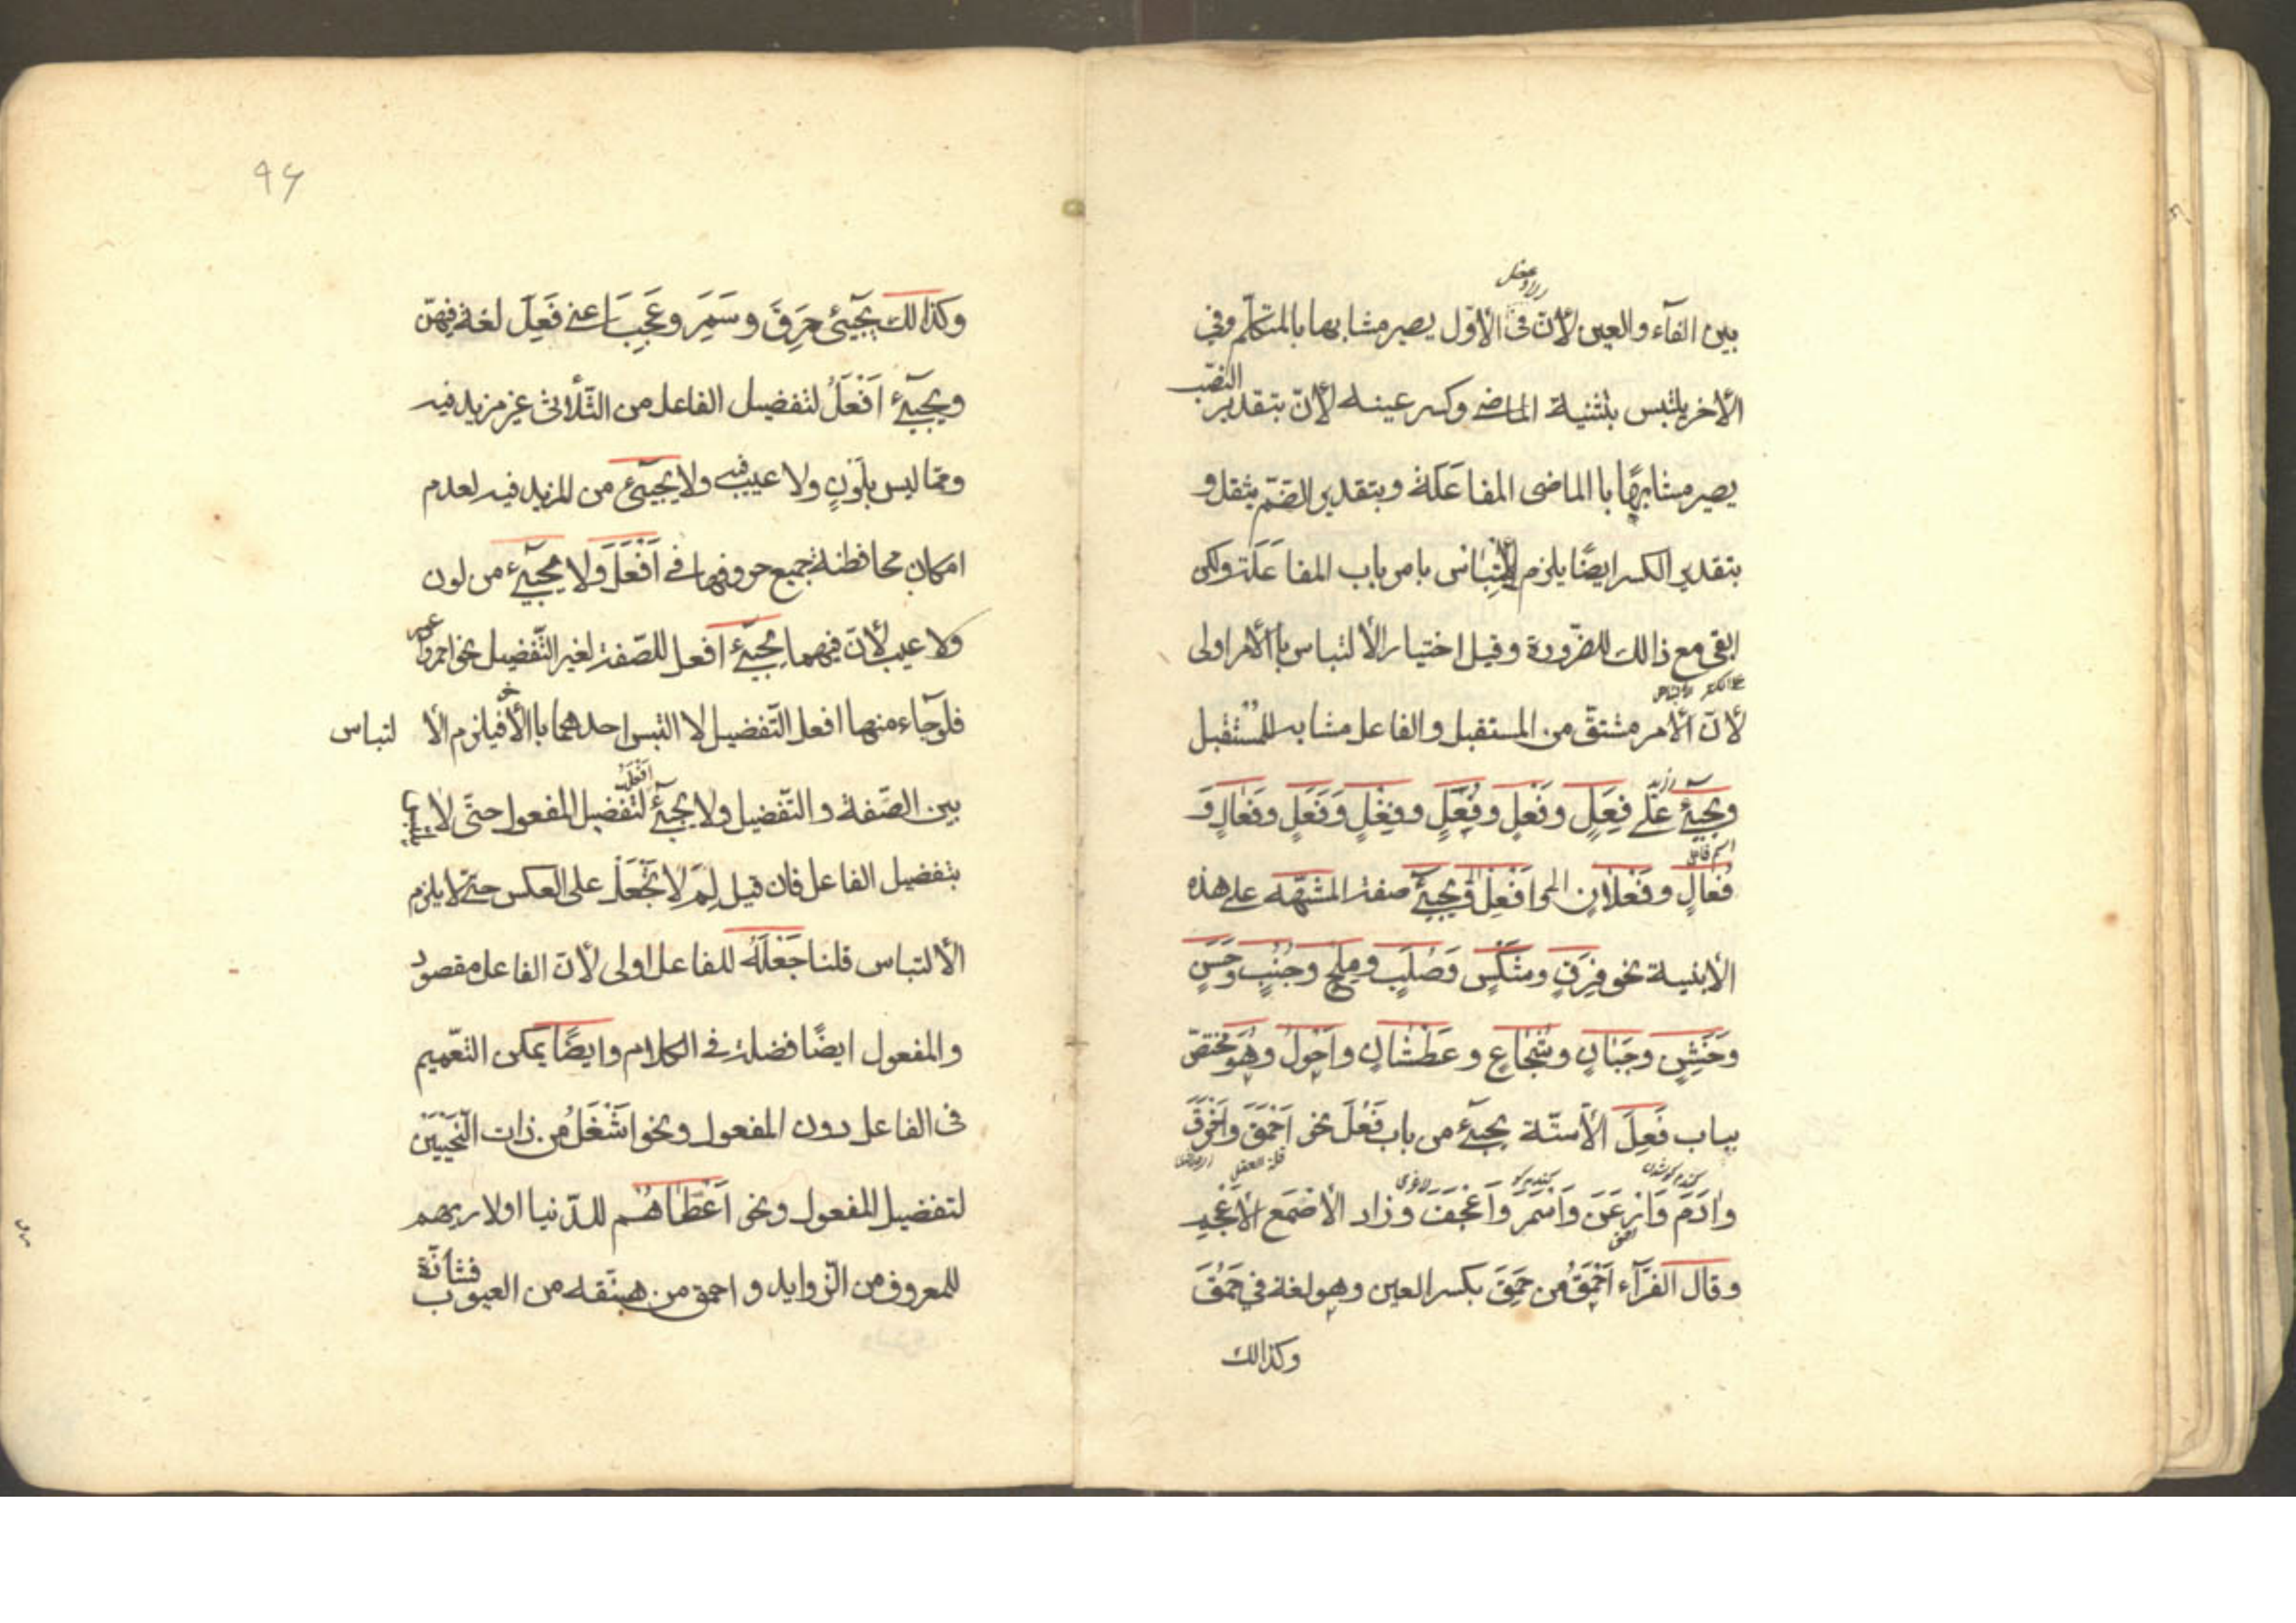 بين الفآء والعين لأنّ فى الأوّل يصير مشابها بالمتكلّم وفي
الأخر يلتبس بتثنية الماضى وكسر عينه لأنّ بتقدير النصّب
يصير مشابهًا با الماضى المفاعَلة وبتقدير الضمّ يثقل و
بتقدير الكسر ايضًا يلزم الألتباس بامر باب المفاعَلة ولكن
ابقى مع ذالك للضّرورة وقيل اختيار الألتباس باالأمر اولى
لأنّ الأمر مشتقّ من المستقبل والفاعل مشابه للمستقبل
ويجيٓئ علٰى فَعِلٍ وفَعْلٍ وفُعْلٍ وفِعْلٍ وَفَعَلٍ وفَعَالٍ وَ
اسم فاعل
فُعَالٍ وفَعْلانٍ وأفْعَل ويجيٓئ صفة المشبّهة على هذه
الأبنية نحو فَرِقٍ وشَكْسٍ وَصُلْبٍ ومِلْحٍ وجُنُبٍ وحَسَنٍ
وخَشِنٍ وجَبَانٍ وشُجَاعٍ وعَطْشَانٍ واَحْوَلُ وهُوَ مختصّ
بباب فَعِلَ الّا ستّة يجيٓئ من باب فَعُلَ نحو اَحْمَقَ وَاَخْرَقَ
وٰادَمَ وَاَرْعَنَ وَاَسْمَرَ وَاَعْجَفَ وزاد الأصْمَع الأعْجَم
وقال الفرّآء اَحْمَقُ من حَمِقَ بكسر العين وهو لغة في حَمُقَ
وكذالك
۹۶
وكذالك يجيٓئ خَرِقَ وسَمِرَ وعَجِفَ اعنے فَعِلَ لغة فيهنّ
ويجيٓئ اَفْعَلُ لتفضيل الفاعل من الثّلاثى غير مزيد فيه
وممّا ليس بلَوْنٍ ولا عيب فيه ولا يجيٓئ من المزيد فيه لعدم
امكان محافظة جميع حروفها فے اَفْعَلَ ولا يجيٓئ من لون
ولا عيب لأنّ فيهما يجيٓئ افعل للصّفة لغير التّفضيل نحو احمر و
فلو جآء منهما افعل التّفضيل لا التبس احدهما باالأخر فيلزم الألتباس
بين الصّفة والتّفضيل ولا يجيٓئ اَفْعَل لتفضيل المفعول حتّى لا
بتفضيل الفاعل فان قيل لِمَ لا يَجْعَل على العكس حتّى لا يلزم
الألتباس قلنا جَعْلُهُ للفاعل اولى لأنّ الفاعل مقصود
والمفعول ايضًا فضلة فے الكلام وايضًا يمكن التّعميم
فى الفاعل دون المفعول ونحو اَشْغَلُ من ذات النّحيَيْن
لتفضيل المفعول ونحو اَعْطَاهُم للدّنيا اولاربهم
للمعروف من الزّوايد و احمق من هبنّقه من العيوب فشاذّة